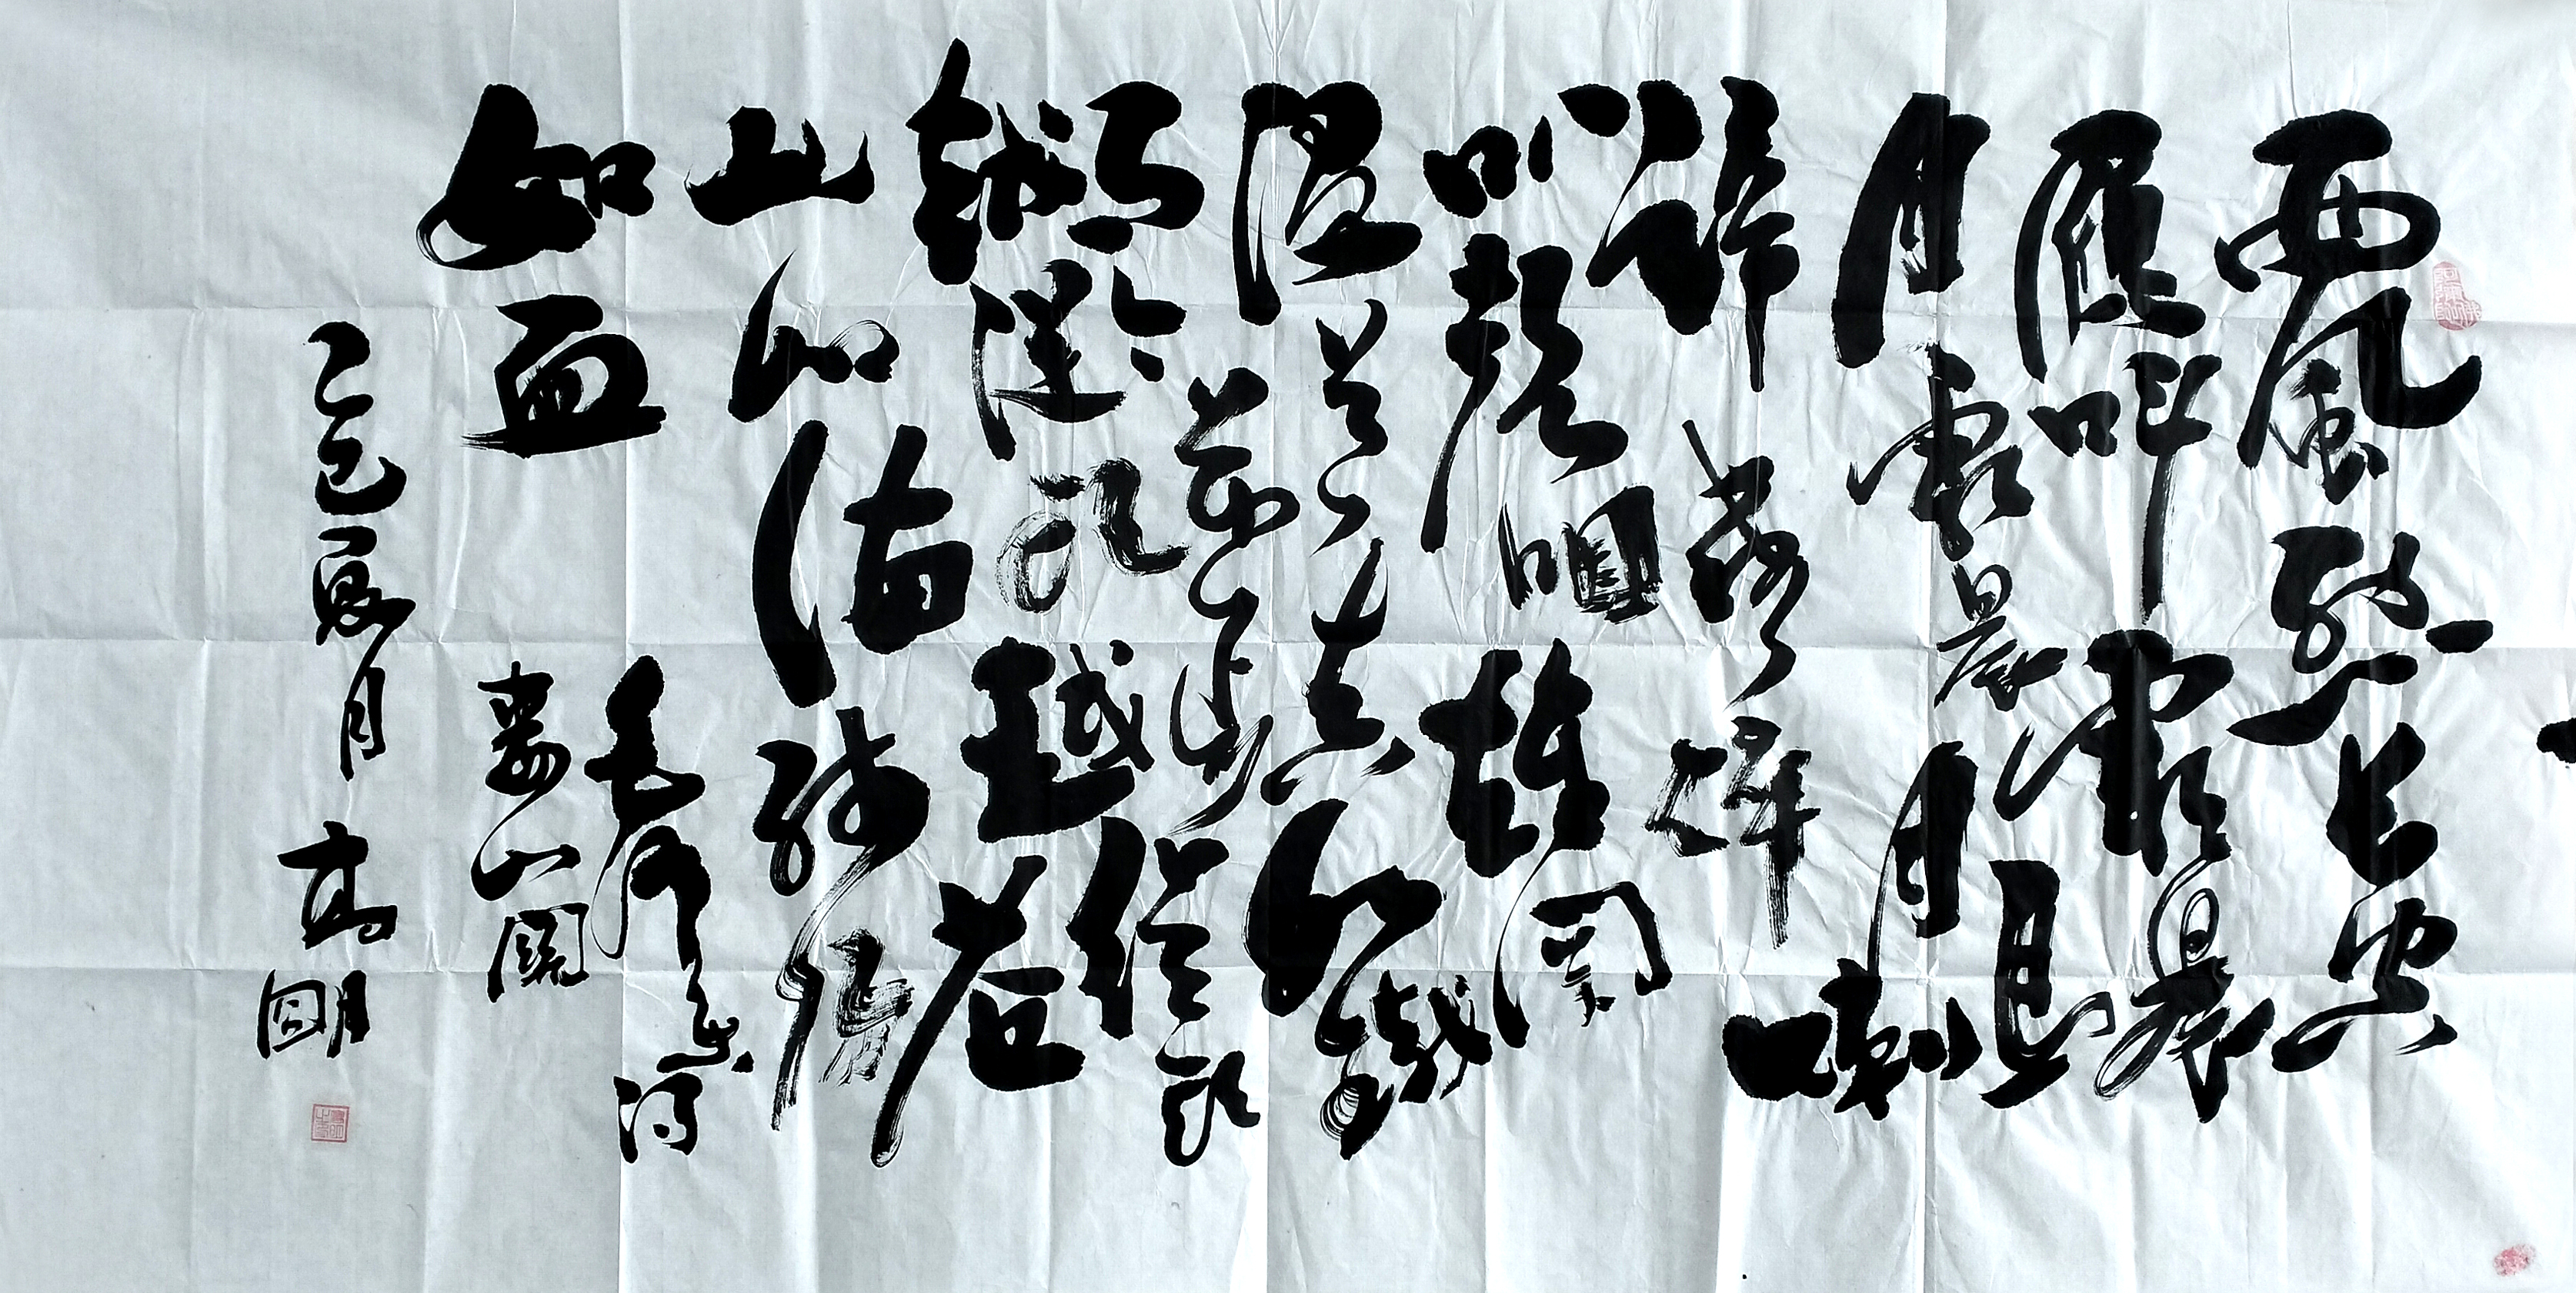 西風烈長空
雁叫霜晨
月霜晨月馬
蹄聲碎喇
叭聲咽雄關
漫道真如鐵
而今邁步從頭
越從頭越蒼
山如海殘陽
如血
毛澤东詞
婁山關
乙巳夏月高朙